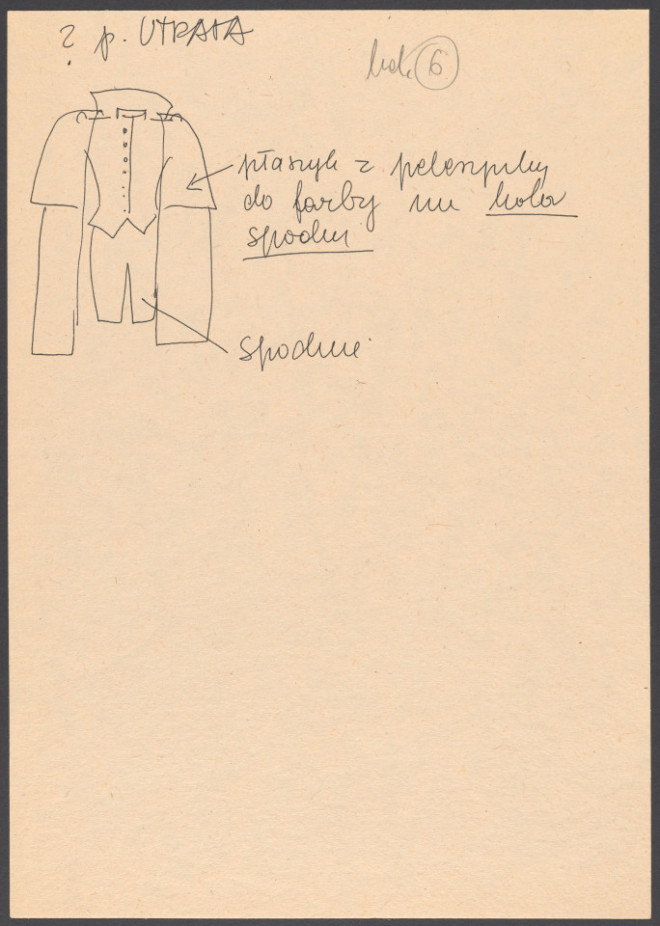 ? p. UTRATA
6
płaszyk z pelerynką
do farby na kolor
spodni
spodnie